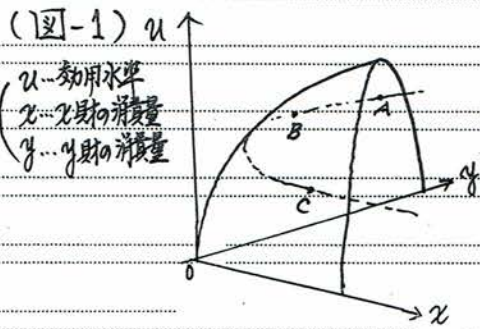 (図-1) u
u…効用水準
x…x財の消費量
y…y財の消費量
A
B
y
C
0
x